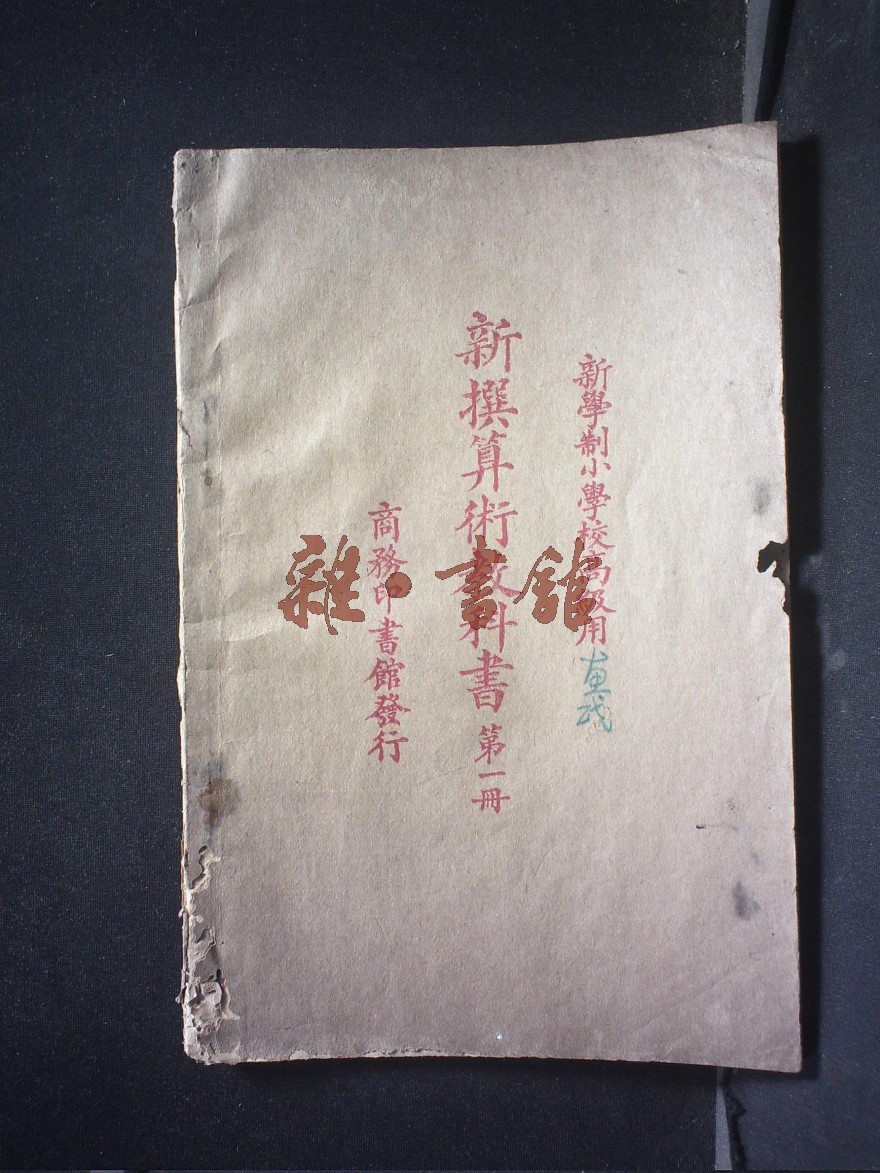 新學制小學校高級用
新撰算術教科書 第一冊
商務印書館發行
雜·書館